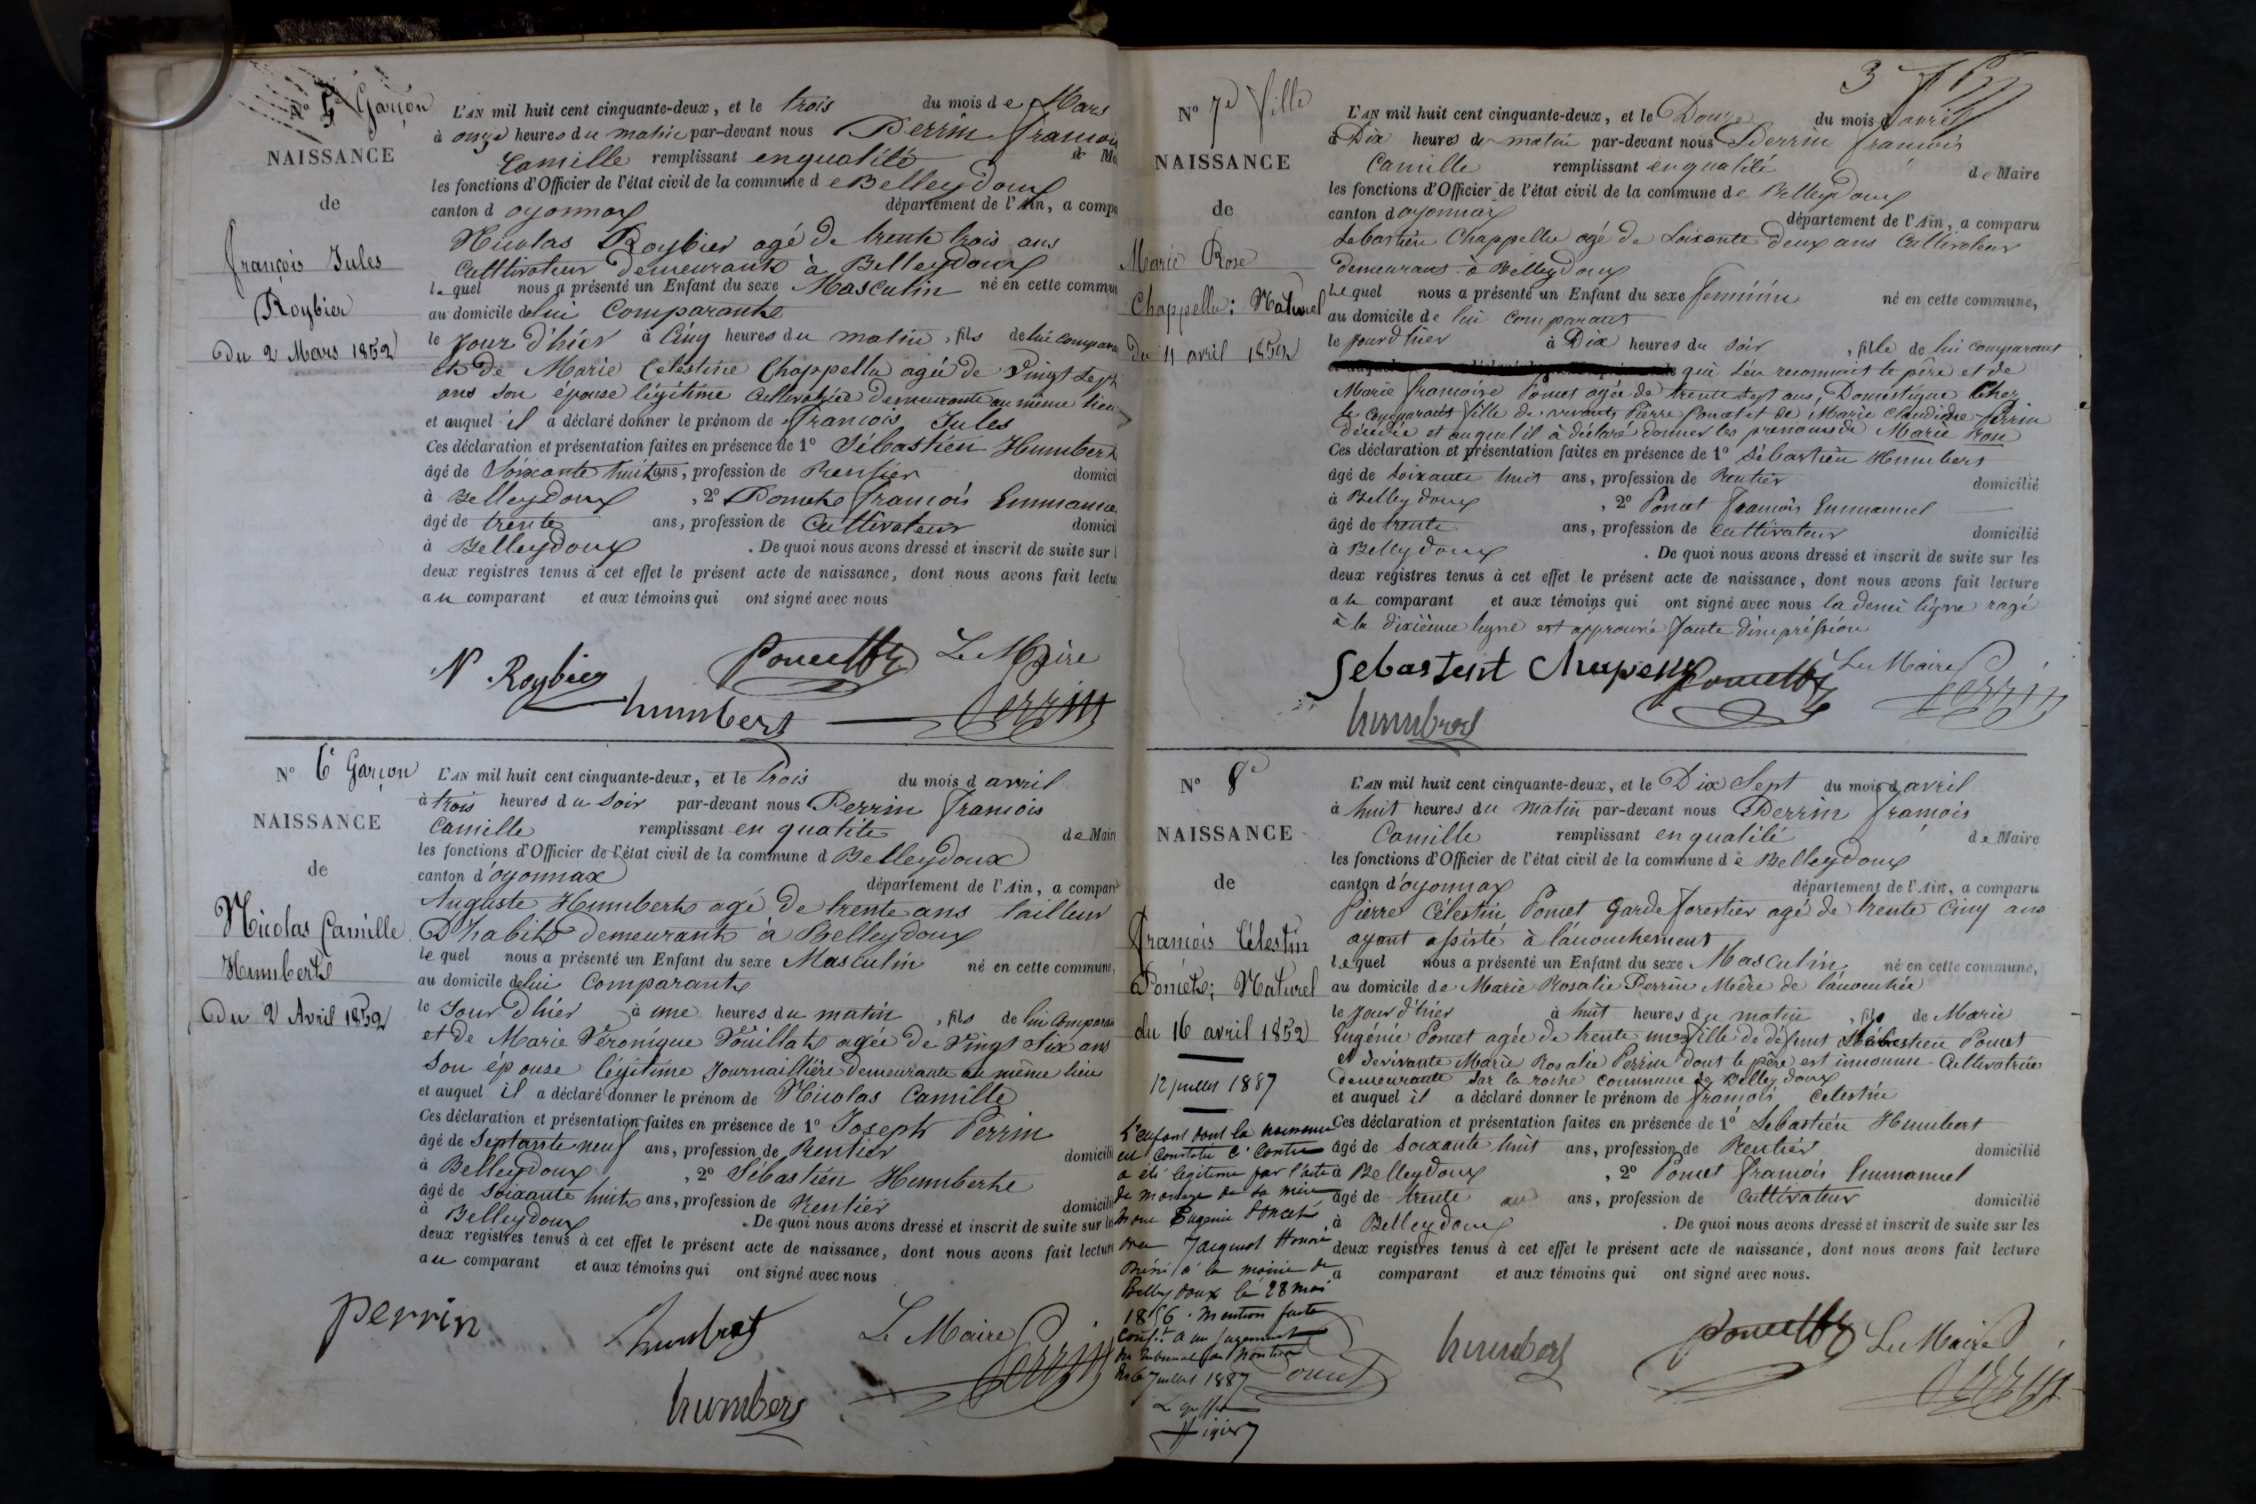 N° 5e Garçon
NAISSANCE
de
françois Jules
Roybier
Du 2 Mars 1852
L'AN mil huit cent cinquante-deux, et le trois du mois de Mars
à onze heures du matin par-devant nous Perrin francois
Camille remplissant enqualité de M
les fonctions d'Officier de l'état civil de la commune de Belleydoux
canton d oyonnax département de l'Ain, a compa
Nicolas Roybier agé de trente trois ans
Culltivateur demeurants à Belleydoux
lequel nous a présenté un Enfant du sexe Masculin né en cette commun
au domicile de lui Comparants
le jour d'hier à Cinq heures du matin, fils de lui compara
et de Marie Celestine Chappellu agée de Vingt Sept
ans son épouse légitime Cultivatrice demeurante au même lieu
et auquel il a déclaré donner le prénom de francois Jules
Ces déclaration et présentation faites en présence de 1° Sébastien Humbert
âgé de Soixante huit ans, profession de Rentier domici
à Belleydoux, 2° Poncet francois Emmanue
âgé de trente ans, profession de Cultivateur domici
à Belleydoux. De quoi nous avons dressé et inscrit de suite sur l
deux registres tenus à cet effet le présent acte de naissance, dont nous avons fait lectu
au comparant et aux témoins qui ont signé avec nous
N Roybier Poncet Le Maire
humbert Perrin
N° 6e Garçon
NAISSANCE
de
Nicolas Camille
Humberts
Du 2 Avril 1852
L'AN mil huit cent cinquante-deux, et le trois du mois d avril
à trois heures du soir par-devant nous Perrin francois
Camille remplissant en qualité de Mair
les fonctions d'Officier de l'état civil de la commune d Belleydoux
canton d'oyonnax département de l'Ain, a comparu
Auguste Humberts agé de trente ans tailleur
D'habits demeurants à Belleydoux
lequel nous a présenté un Enfant du sexe Masculin né en cette commune,
au domicile de lui Comparants
le Jour d'hier à une heures du matin, fils de lui Comparan
et de Marie Véronique Vouillats agée de Vingt Six ans
Son épouse légitime Journaillière demeurante au même lieu
et auquel il a déclaré donner le prénom de Nicolas Camille
Ces déclaration et présentation faites en présence de 1° Joseph Perrin
âgé de Septante neuf ans, profession de Rentier domicilié
à Belleydoux, 2° Sébastien Humberts
âgé de soixante huit ans, profession de Rentier domicilié
à Belleydoux. De quoi nous avons dressé et inscrit de suite sur les
deux registres tenus à cet effet le présent acte de naissance, dont nous avons fait lecture
au comparant et aux témoins qui ont signé avec nous
perrin humbert Le Maire
humbers Perrin
3
N° 7e fille
NAISSANCE
de
Marie Rose
Chappellu: Naturel
Du 11 avril 1852
L'AN mil huit cent cinquante-deux, et le Douze du mois d avril
à Dix heures du matin par-devant nous Perrin françois
Camille remplissant en qualité de Maire
les fonctions d'Officier de l'état civil de la commune de Belleydoux
canton d oyonnax département de l'Ain, a comparu
Sebastien Chappellu agé de Soixante deux ans Cultivateur
demeurans à Belleydoux
Lequel nous a présenté un Enfant du sexe feminin né en cette commune,
au domicile de lui comparant
le jour d'hier à Dix heures du soir, fille de lui comparant
qui s'en reconnait le père et de
Marie francoise Poncet agée de trente sept ans, Domestique Chez
le comparant fille de vivants Pierre Poncet et de Marie Claudine Perrin
décédée et auquel il à déclaré donner les prenoms de Marie Rose
Ces déclaration et présentation faites en présence de 1° Sébastien Humbert
âgé de Soixante huit ans, profession de Rentier domicilié
à Belleydoux, 2° Poncet francois Emmanuel
âgé de trente ans, profession de Cultivateur domicilié
à Belleydoux. De quoi nous avons dressé et inscrit de suite sur les
deux registres tenus à cet effet le présent acte de naissance, dont nous avons fait lecture
au comparant et aux témoins qui ont signé avec nous la demi ligne razé
à la dixième ligne est approuvé faute d'impréssion
Sebastent Chapellu Poncet Le Maire
humbert Perrin
N° 8e
NAISSANCE
de
francois Célestin
Poncets; Naturel
du 16 avril 1852
12 juillet 1887
L'enfant dont la naissance
est constatée Ci Contre
a été légitimé par l'acte
de mariage de sa mère
Marie Eugénie Poncet
avec Jacquet Honoré
à la mairie de
Belleydoux le 28 mai
1856. Mention faite
conf.t à un jugement
du tribunal de Nantua
du 6 Juillet 1887
Le greffier
L'AN mil huit cent cinquante-deux, et le Dix Sept du mois d avril
à huit heures du matin par-devant nous Perrin françois
Camille remplissant en qualité de Maire
les fonctions d'Officier de l'état civil de la commune de Belleydoux
canton d'oyonnax département de l'Ain, a comparu
Pierre Célestin Poncet Garde forestier agé de trente Cinq ans
ayant assisté à l'acouchement
lequel nous a présenté un Enfant du sexe Masculin né en cette commune,
au domicile de Marie Rosalie Perrin Mère de l'acouchée
le jour d'hier à huit heures du matin, fils de Marie
Eugénie Poncet agée de trente un fille de défunt Sébastien Poncet
et de vivante Marie Rosalie Perrin dont le père est inconnu - Cultivatrice
demeurante sur la roche commune de Belleydoux
et auquel il a déclaré donner le prénom de françois Celestin
Ces déclaration et présentation faites en présence de 1° Sebastien Humbert
âgé de soixante huit ans, profession de Rentier domicilié
à Belleydoux, 2° Poncet francois Emmanuel
âgé de trente ans, profession de Cultivateur domicilié
à Belleydoux. De quoi nous avons dressé et inscrit de suite sur les
deux registres tenus à cet effet le présent acte de naissance, dont nous avons fait lecture
a comparant et aux témoins qui ont signé avec nous.
Poncet humbert Poncet Le Maire
Perrin